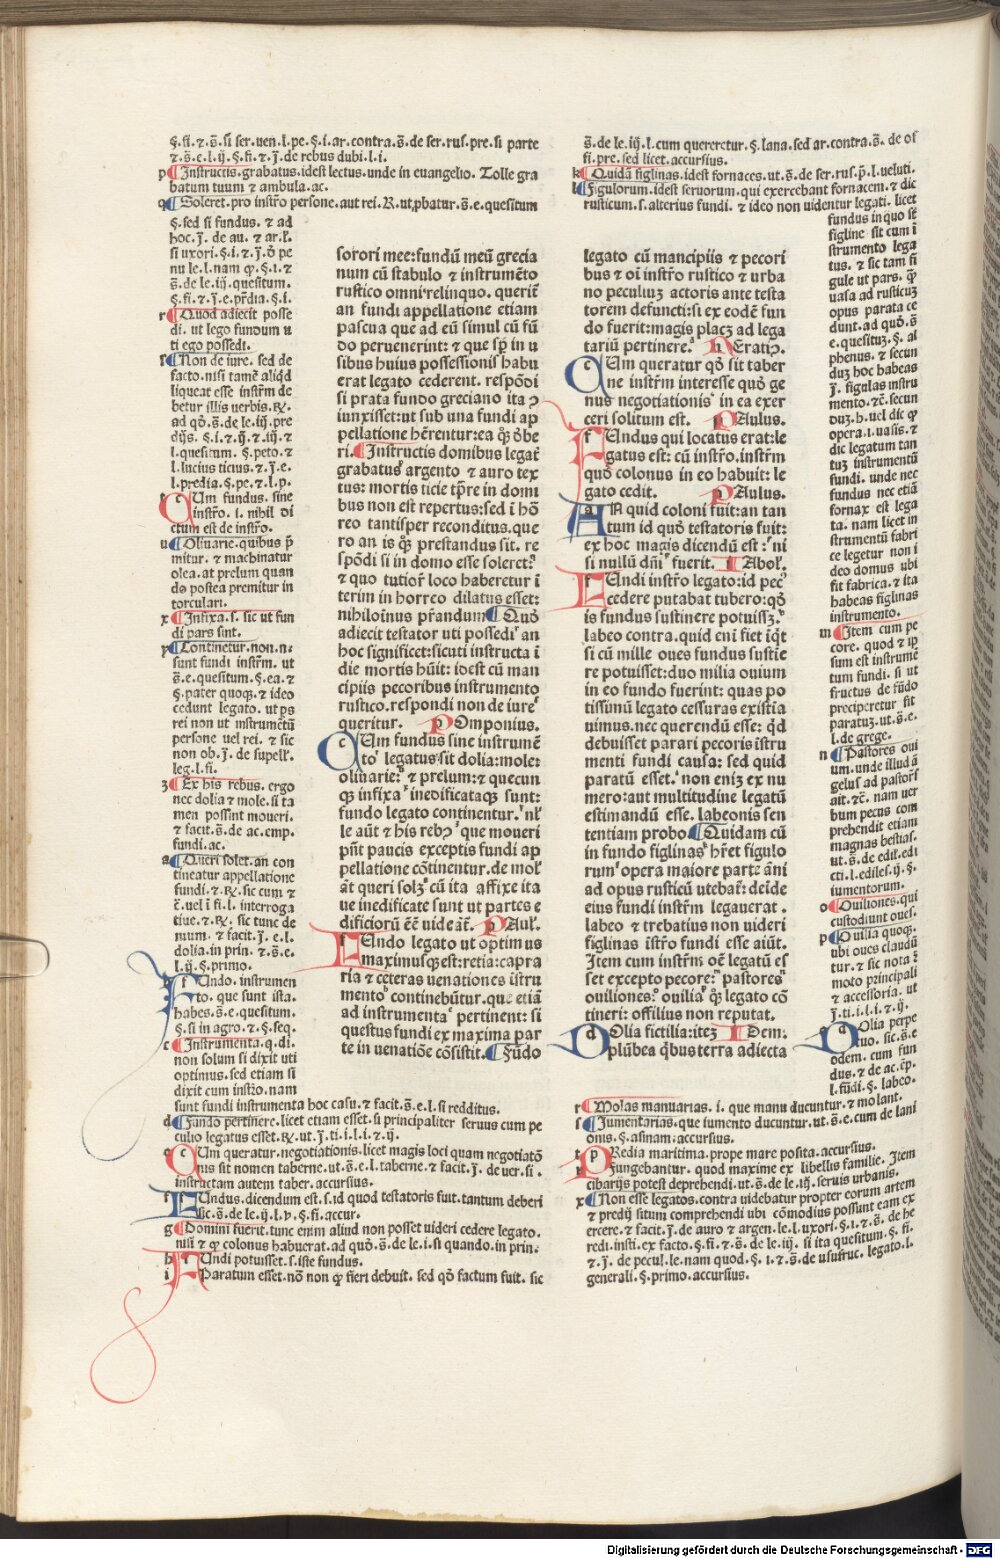 §.fi.⁊.s̄.si ser.uen.l.pe.§.i.ar.contra.s̄.de ser.rus.pre.si parte
⁊.s̄.e.l.ij.§.fi.⁊.j̄.de rebus dubi.l.i.
p Instructis.grabatus.idest lectus.unde in euangelio. Tolle gra
batum tuum ⁊ ambula.ac.
q Soleret.pro instr̄o persone.aut rei.R.ut,pbatur.s̄.e.quesitum
§.sed si fundus. ⁊ ad
hoc.j̄.de au. ⁊ ar.l.
si uxori.§.i.⁊.j̄.d̄ pe
nu le.l.nam qꝫ.§.i.⁊
s̄.de le.iij.quesitum.
§.fi.⁊.j̄.e.pr̄dia.§.i.
r Quod adiecit posse
di. ut lego fundum u
ti ego possedi.
s Non de iure. sed de
facto.nisi tamē aliq̄d
liqueat esse instr̄m de
betur illis uerbis.R.
ad qd̄.s̄.de le.iij.pre
dijs. §.i.⁊.ij.⁊.iij.⁊
l.quesitum. §.peto.⁊
l.lucius ticius.⁊.j̄.e.
l.predia.§.pe.⁊.l.p.
t Cum fundus. sine
instr̄o. i. nihil di
ctum est de instr̄o.
u Oliuarie.quibus p̄
mitur. ⁊ machinatur
olea.at prelum quan
do postea premitur in
torculari.
x Infixa.s. sic ut fun
di pars sint.
y Continetur.non.n.
sunt fundi instr̄m. ut
s̄.e.quesitum.§.ea.⁊
§.pater quoqꝫ.⁊ ideo
cedunt legato. ut ps
rei non ut instrumētū
persone uel rei. ⁊ sic
non ob.j̄.de supell.
leg.l.fi.
z Ex his rebus. ergo
nec dolia ⁊ mole.si ta
men possint moueri.
⁊ facit.s̄.de ac.emp.
fundi.ac.
a Queri solet.an con
tineatur appellatione
fundi.⁊.R.sic cum ⁊
c̄.uel i fi.l. interroga
tiue.⁊.R. sic tunc de
mum. ⁊ facit.j̄. e.l.
dolia.in prin. ⁊.s̄.e.
l.ij.§.primo.
b Fundo. instrumen
to. que sunt ista.
habes.s̄.e.quesitum.
§.si in agro.⁊.§.seq.
c Instrumenta.q.di.
non solum si dixit uti
optimus.sed etiam si
dixit cum instr̄o.nam
sunt fundi instrumenta hoc casu.⁊ facit.s̄.e.l.si redditus.
d Fando pertinere.licet etiam esset.si principaliter seruus cum pe
culio legatus esset.R.ut.j̄.ti.i.l.i.⁊.ij.
e Cum queratur.negotiationis.licet magis loci quam negotiatō
nis sit nomen taberne.ut.s̄.e.l.taberne.⁊ facit.j̄.de uer.si.
instructam autem taber.accursius.
f Fundus.dicendum est.s.id quod testatoris fuit.tantum deberi
hic.s̄.de le.ij.l.p.§.fi.accur.
g Domini fuerit.tunc enim aliud non posset uideri cedere legato.
nisi ⁊ qꝫ colonus habuerat.ad quō.s̄.de le.i.si quando.in prin.
h Fundi potuisset.s.iste fundus.
i Paratum esset.nō non qꝫ fieri debuit. sed qd̄ factum fuit. sic
sorori mee:fundū meū grecia
num cū stabulo ⁊ instrumēto
rustico omni relinquo. querit̄
an fundi appellatione etiam
pascua que ad eū simul cū fū
do peruenerint: ⁊ que sp̄ in u
sibus huius possessionis habu
erat legato cederent. respōdi
si prata fundo greciano ita ꝯ
iunxisset:ut sub una fundi ap
pellatione hērentur:ea qꝫ d̄be
ri. Instructis domibus legat̄
grabatus argento ⁊ auro tex
tus: mortis ticie tp̄re in domi
bus non est repertus:sed i hō
reo tantisper reconditus.que
ro an is qꝫ prestandus sit. re
spōdi si in domo esse soleret:
⁊ quo tutior̄ loco haberetur i
terim in horreo dilatus esset:
nihiloīnus pr̄andum Quō
adiecit testator uti possedi an
hoc significet:sicuti instructa i
die mortis hūit: idest cū man
cipiis pecoribus instrumento
rustico.respondi non de iure
queritur. Pomponius.
Cum fundus sine instrumē
to legatus sit dolia:mole:
oliuarie: ⁊ prelum:⁊ quecun
qꝫ infixa inedificataqꝫ sunt:
fundo legato continentur. nl̄
le aūt ⁊ his rebꝫ que moueri
pn̄t paucis exceptis fundi ap
pellatione cōtinentur.de mol
āt queri solꝫ cū ita affixe ita
ue inedificate sunt ut partes e
dificiorū ēē uideāt̄. Paul.
Fundo legato ut optim us
maximusqꝫ est:retia:capra
ria ⁊ ceteras uenationes istru
mento continebūtur.que etiā
ad instrumenta pertinent: si
questus fundi ex maxima par
te in uenatiōe cōsistit. Fūdo
s̄.de le.iij.l.cum quereretur.§.lana.sed ar.contra.s̄. de of
fi.pre.sed licet.accursius.
k Quidā figlinas.idest fornaces.ut.s̄.de ser.rus.p̄.l.ueluti.
l Figulorum.idest seruorum.qui exercebant fornacem.⁊ dic
rusticum.s.alterius fundi. ⁊ ideo non uidentur legati. licet
legato cū mancipiis ⁊ pecori
bus ⁊ oī instr̄o rustico ⁊ urba
no peculiuꝫ actoris ante testa
torem defuncti:si ex eodē fun
do fuerit:magis placꝫ ad lega
tariū pertinere. Neratiꝰ.
Cum queratur qd̄ sit taber
ne instr̄m interesse quō ge
nus negotiationis in ea exer
ceri solitum est. Paulus.
Fundus qui locatus erat:le
gatus est: cū instr̄o.instr̄m
quō colonus in eo habuit: le
gato cedit. Paulus.
An quid coloni fuit:an tan
tum id quō testatoris fuit:
ex hoc magis dicendū est: ni
si nullū dn̄i fuerit. Iabol.
Fundi instr̄o legato:id pec
cedere putabat tubero:qd̄
is fundus sustinere potuissꝫ.
labeo contra.quid eni fiet iq̄t
si cū mille oues fundus sustie
re potuisset:duo milia ouium
in eo fundo fuerint: quas po
tissimū legato cessuras existia
uimus.nec querendū esse: qd̄
debuisset parari pecoris istru
menti fundi causa: sed quid
paratū esset. non eniꝫ ex nu
mero:aut multitudine legatū
estimandū esse. labeonis sen
tentiam probo Quidam cū
in fundo figlinas hr̄et figulo
rum opera maiore parte āni
ad opus rusticū utebat̄: deīde
eius fundi instr̄m legauerat.
labeo ⁊ trebatius non uideri
figlinas istr̄o fundi esse aiūt.
Item cum instr̄m oē legatū es
set excepto pecore: pastores
ouiliones: ouilia qꝫ legato cō
tineri: offilius non reputat.
Dolia fictilia:iteꝫ Idem.
plūbea qbus terra adiecta
fundus in quo st̄
figline sit cum i
strumento lega
tus. ⁊ sic tam fi
gule ut pars. qꝫ
uasa ad rusticuꝫ
opus parata ce
dunt.ad quō.s̄.
e.quesituꝫ.§. al
phenus. ⁊ secun
duꝫ hoc habeas
j̄. figulas instru
mento.⁊c.secun
duꝫ.h.uel dic qꝫ
opera.i.uasis.⁊
dic legatum tan
tuꝫ instrumentū
fundi. unde nec
fundus nec etiā
fornax est lega
ta. nam licet in
strumentū fabri
ce legetur non i
deo domus ubi
fit fabrica.⁊ ita
habeas figlinas
instrumento.
m Item cum pe
core. quod ⁊ ip̄
sum est instrumē
tum fundi. si ut
fructus de fūdo
preciperetur sit
paratuꝫ.ut.s̄.e.
l.de grege.
n Pastores oui
um.unde illud ā
gelus ad pastor̄
ait.⁊c. nam uer
bum pecus com
prehendit etiam
magnas bestias.
ut.s̄.de edil.edi
cti.l.ediles.ij.§.
iumentorum.
o Ouiliones.qui
custodiunt oues.
p Ouilia quoqꝫ.
ubi oues claudū
tur.⁊ sic nota ꝫ
moto principali
⁊ accessoria. ut
j̄.ti.i.l.i.⁊.ij.
q Dolia perpe
tuo. sic.s̄.e
odem. cum fun
dus.⁊ de ac.ēp.
l.fūdi.§. labeo.
r Molas manuarias. i. que manu ducuntur.⁊ molant.
s Iumentarias.que iumento ducuntur.ut.s̄.e.cum de lani
onis.§.asinam:accursius.
t Predia maritima.prope mare posita.accursius.
u Fungebantur. quod maxime ex libellis familie. Item
cibarijs potest deprehendi.ut.s̄.de le.iij.seruis urbanis.
x Non esse legatos.contra uidebatur propter eorum artem
⁊ predij situm comprehendi ubi cōmodius possunt eam ex
ercere.⁊ facit.j̄.de auro ⁊ argen.le.l.uxori.§.i.⁊.s̄.de he
redi.insti.ex facto.§.fi.⁊.s̄.de le.iij. si ita quesitum.§.fi.
⁊.j̄.de pecul.le.nam quod.§.i.⁊.s̄.de usufruc.legato.l.
generali.§.primo.accursius.
Digitalisierung gefördert durch die Deutsche Forschungsgemeinschaft - DFG